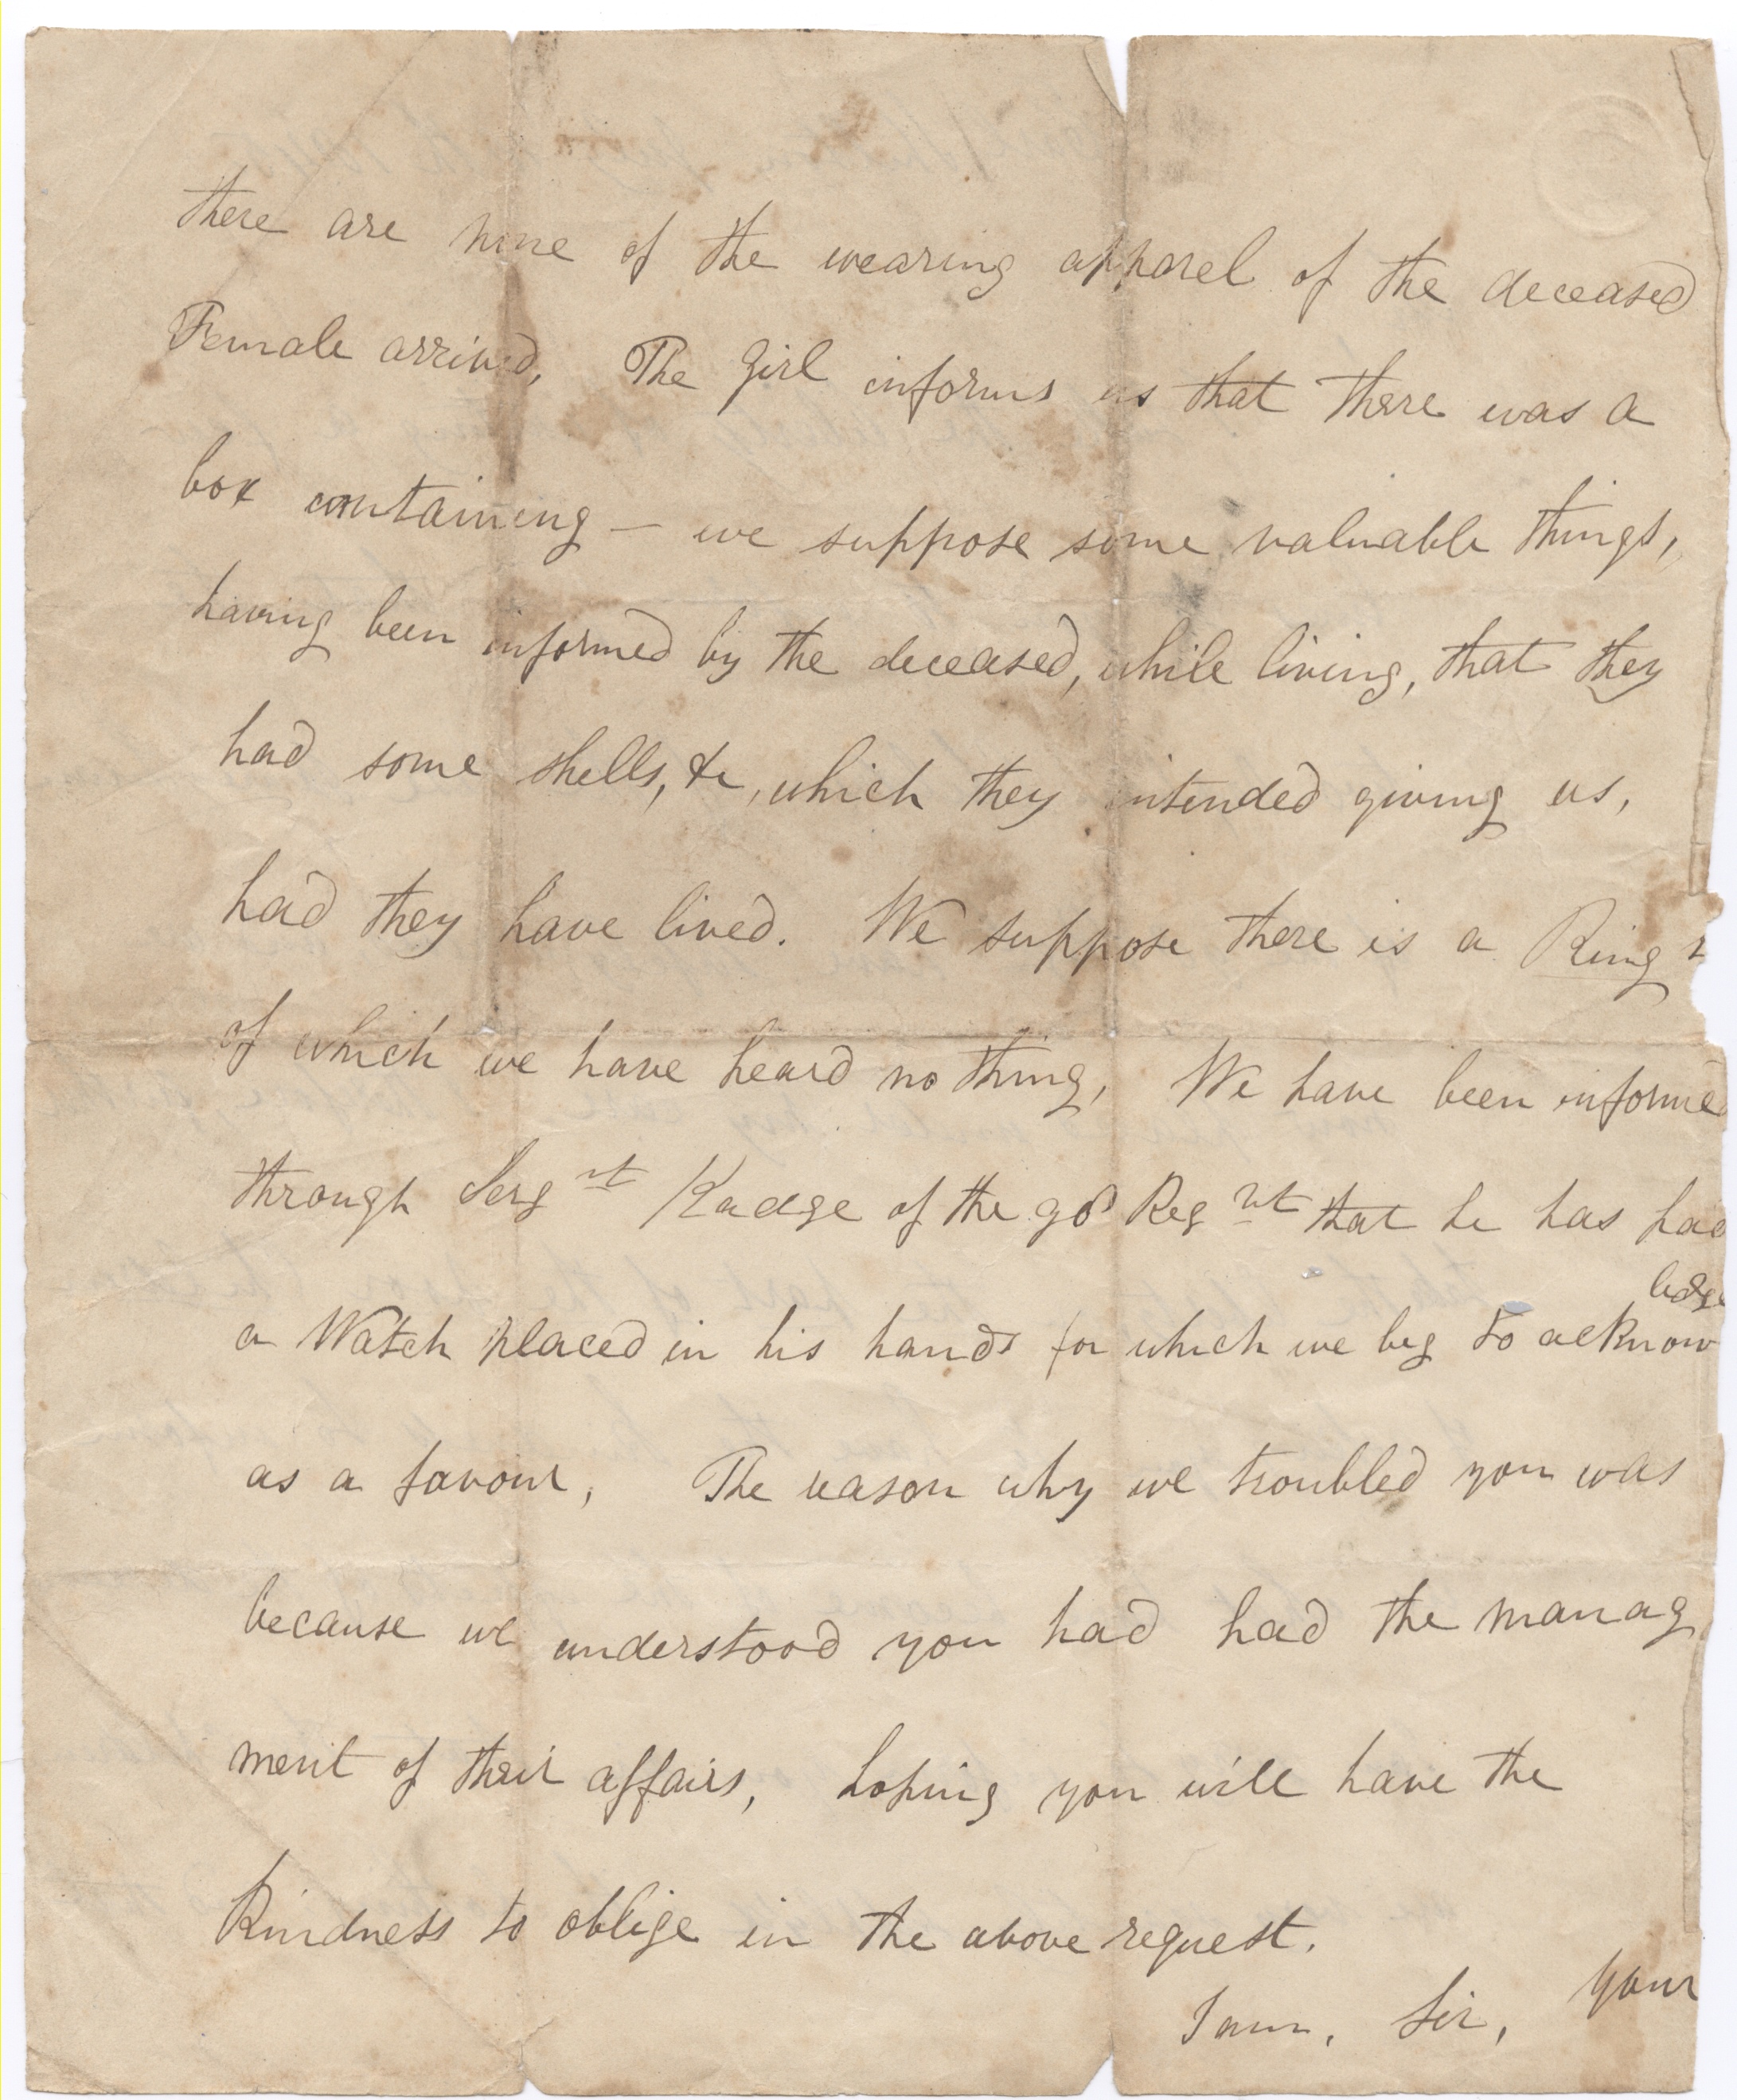 there are none of the wearing apparel of the deceased
Female arrived, The Girl informs us that there was a
box containing – we suppose some valuable things,
having been informed by the deceased, while living, that they
had some shells, &c, which they intended giving us,
had they have lived. We suppose there is a Ring
of which we have heard no thing, We have been informed
through Sergnt Kadge of the 90 Regnt that he has had
ledge
a Watch placed in his hands for which we beg to acknow
as a favour, The reason why we troubled you was
because we understood you had had the manag
ment of their affairs, hoping you will have the
kindness to oblige in the above request.
I am, Sir, your